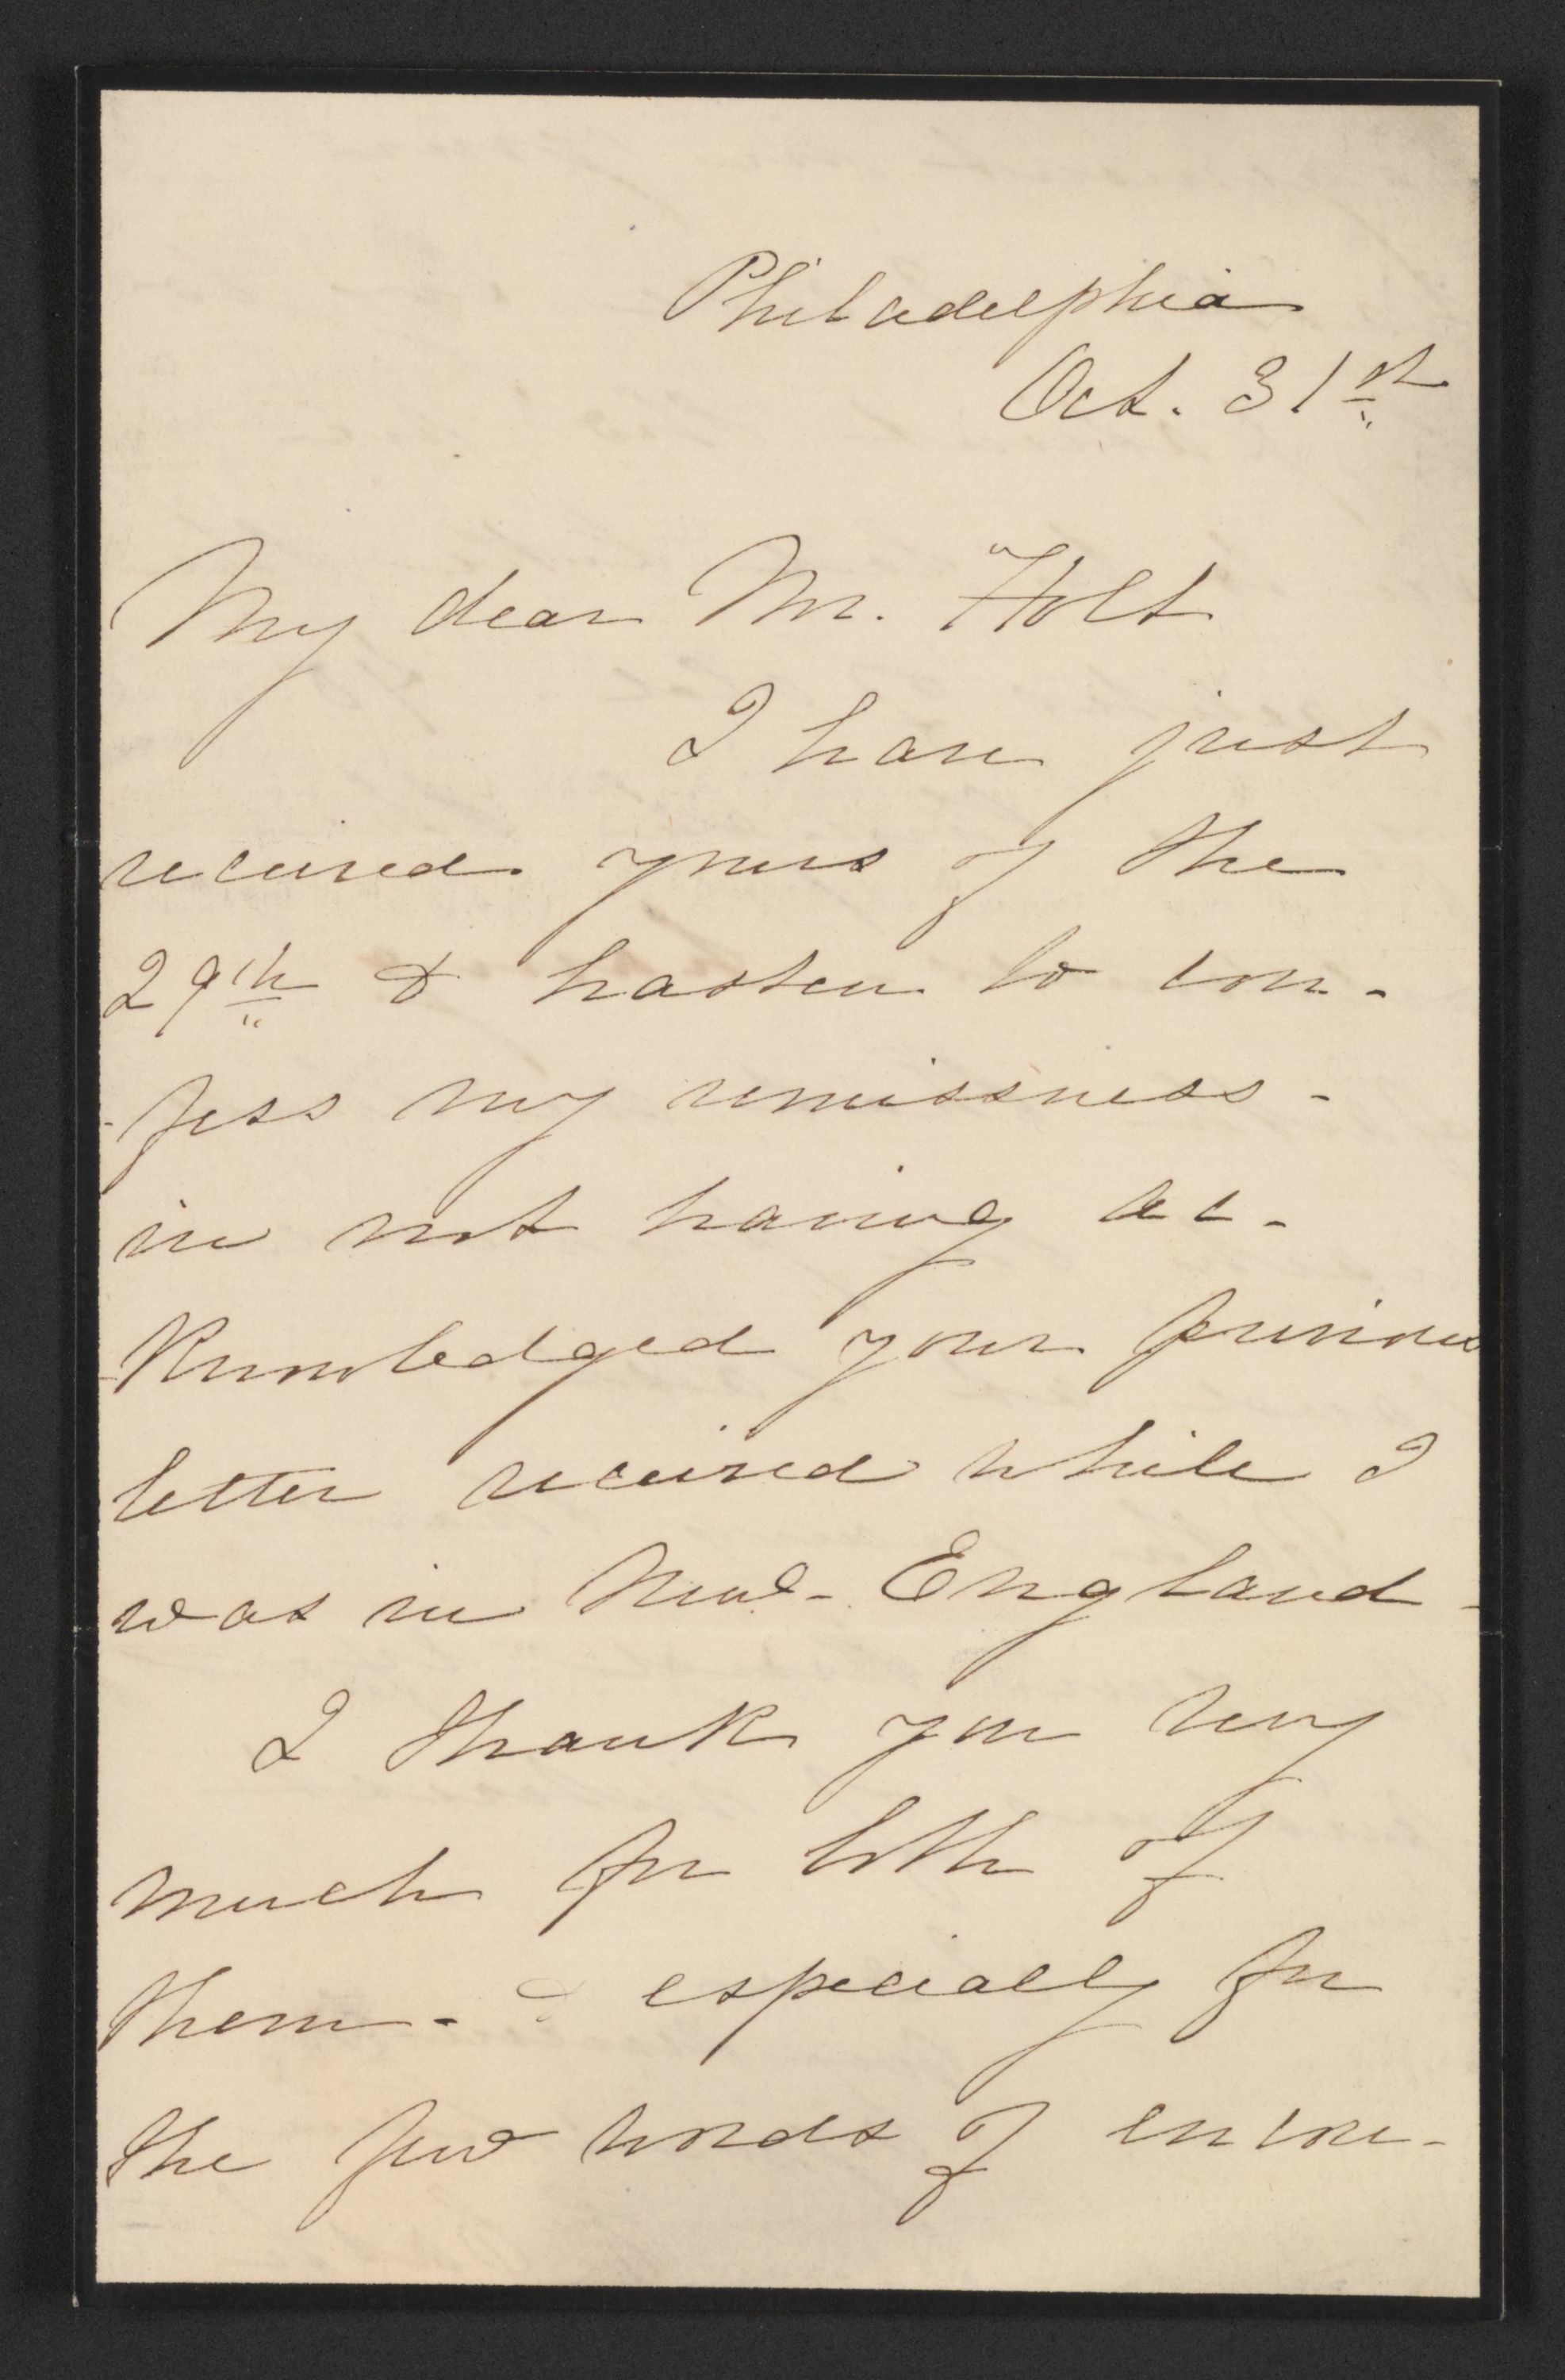 Philadelphia
Oct. 31st
My dear Mr. Holt
I have just
received yours of the
29th & hasten to con-
-fess my remissness -
in not having ac-
-knowledged your previous
letter received while I
was in New-England -
I thank you very
much for both of
them - & especially for
the few words of encou-